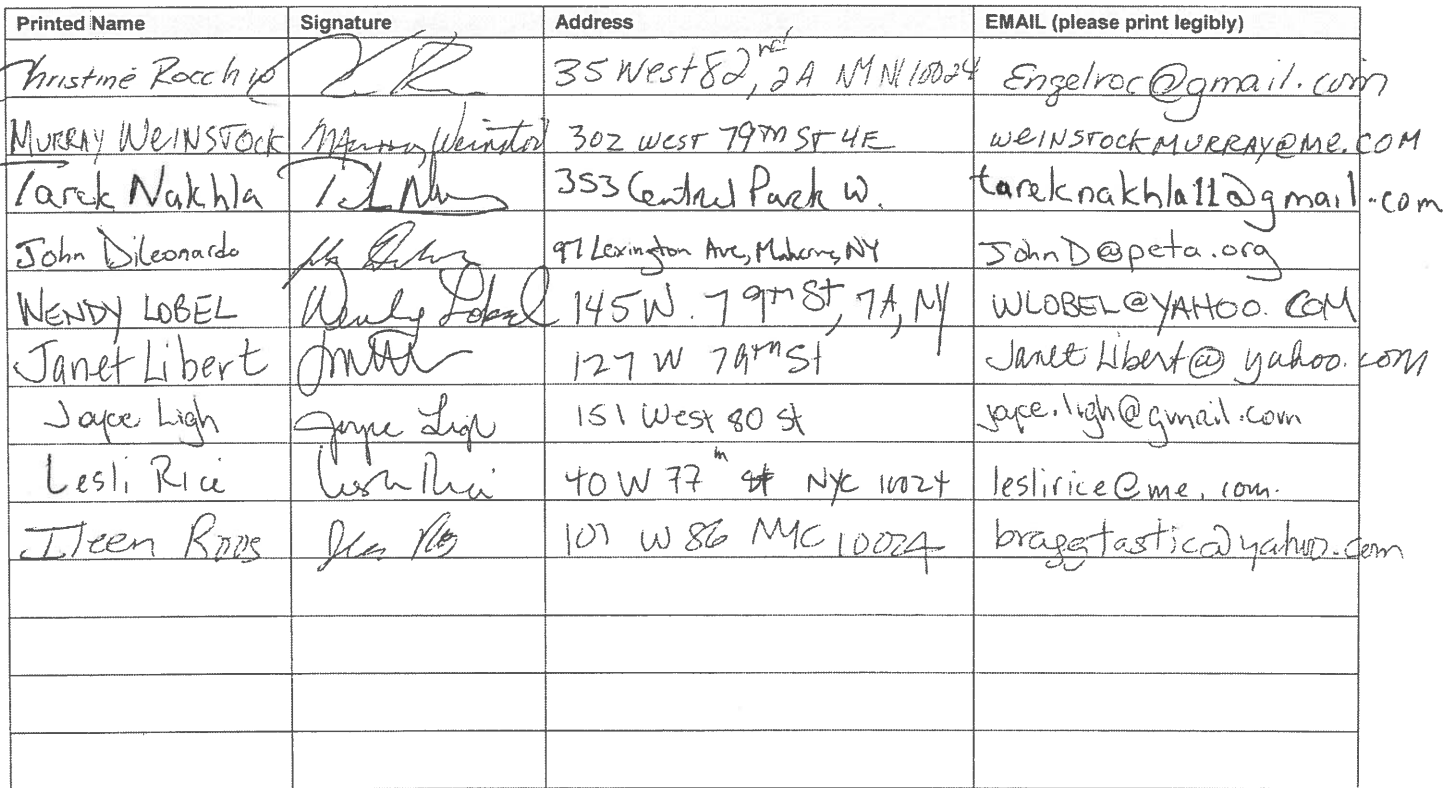 Printed Name Signature Address EMAIL (please print legibly)
Christine Rocchio 35 West 82nd, 2A NY NY 10024 Engelroc@gmail.com
MURRAY WEINSTOCK Murray Weinstock 302 WEST 79TH ST 4E WEINSTOCKMURRAY@ME.COM
Tarek Nakhla 353 Central Park W. tareknakhla11@gmail.com
John Dileonardo 97 Lexington Ave, NY JohnD@peta.org
WENDY LOBEL Wendy Lobel 145 W. 79TH St, 7A, NY WLOBEL@YAHOO.COM
Janet Libert 127 W 79TH St Janet Libert@yahoo.com
Joyce Ligh Joyce Ligh 151 West 80 St joyce.ligh@gmail.com
Lesli Rice Lesli Rice 40 W 77th St NYC 10024 leslirice@me.com.
Ileen Roos 101 W 86 NYC 10024 braggtastic@yahoo.com